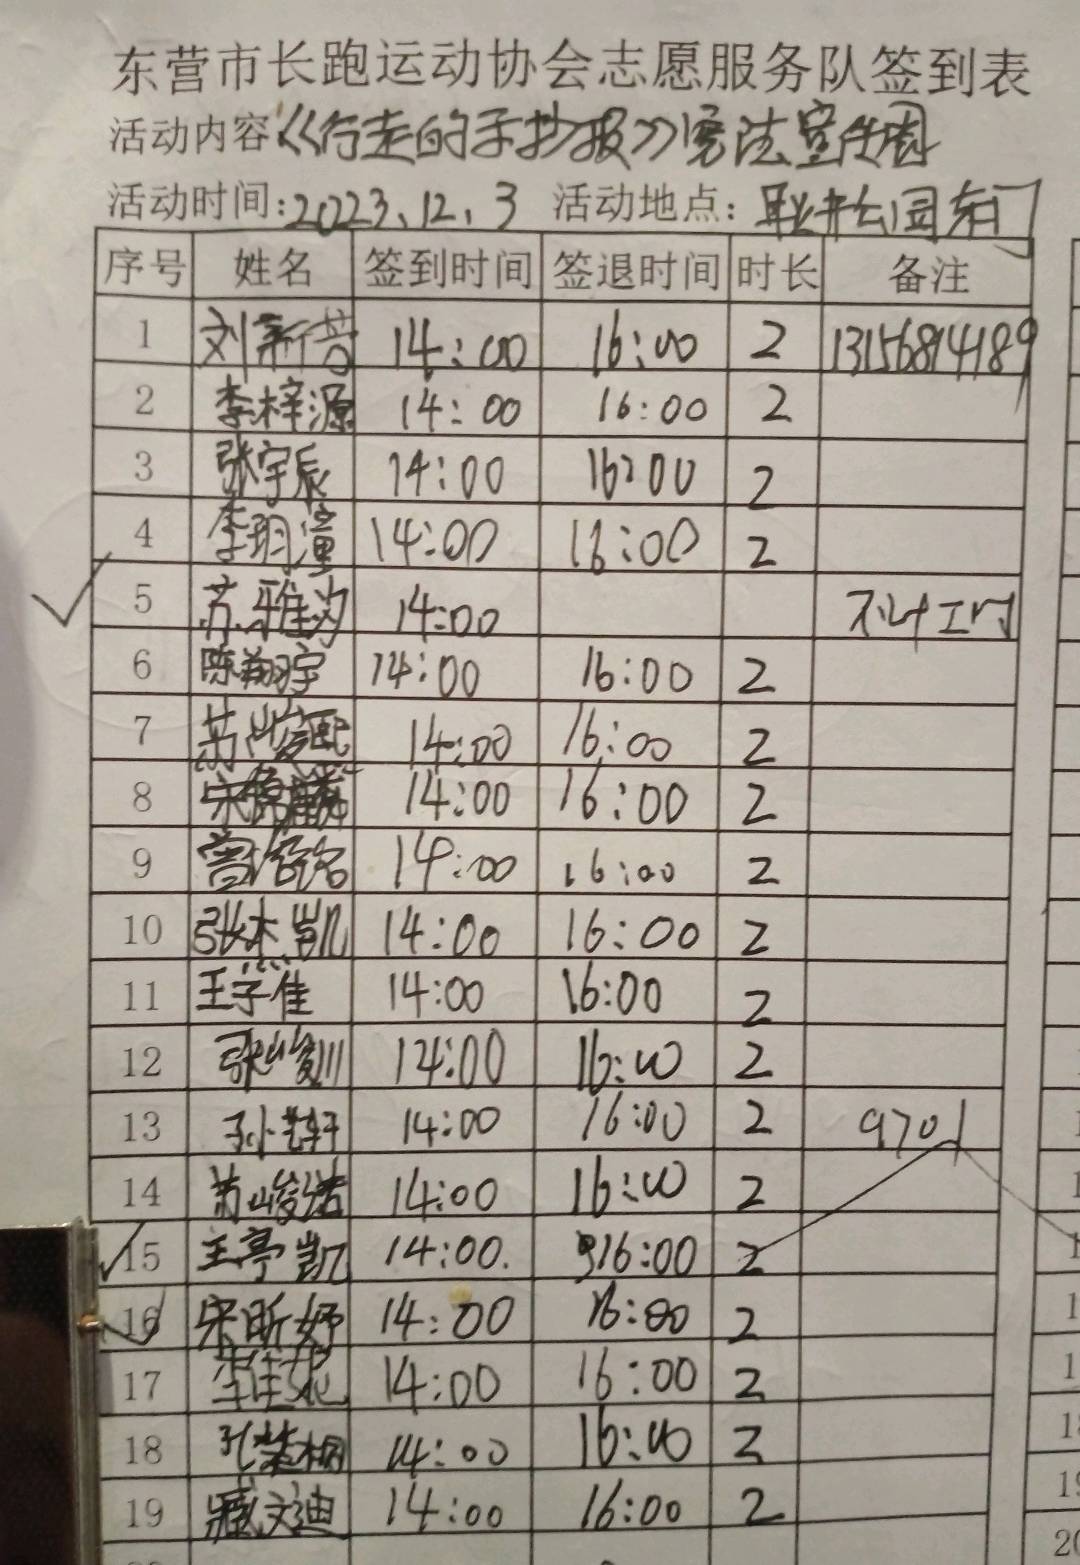 东营市长跑运动协会志愿服务队签到表
活动内容《行走的手抄报》宪法宣传周
活动时间:2023.12.3 活动地点:耿井公园东门
序号 姓名 签到时间 签退时间 时长 备注
1 刘新 14:00 16:00 2 13156814189
2 李梓源 14:00 16:00 2
3 张宇辰 14:00 16:00 2
4 李玥潼 14:00 16:00 2
5 苏雅 14:00 不计工时
6 陈翔宇 14:00 16:00 2
7 苏峻熙 14:00 16:00 2
8 宋麟 14:00 16:00 2
9 曾名 14:00 16:00 2
10 张杰凯 14:00 16:00 2
11 王学佳 14:00 16:00 2
12 张峻川 14:00 16:00 2
13 孙艺轩 14:00 16:00 2 9701
14 峻 14:00 16:00 2
15 王亭凯 14:00. 16:00 2
16 宋昕妤 14:00 16:00 2
17 李佳 14:00 16:00 2
18 孔桐 14:00 16:00 2
19 臧文迪 14:00 16:00 2